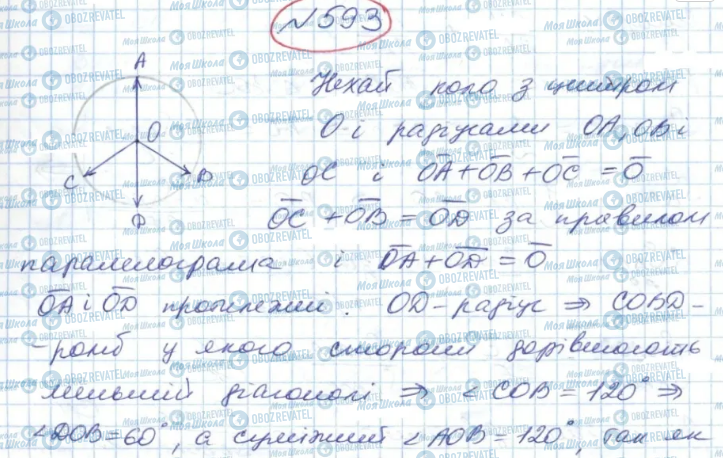 №593
A
Нехай коло з центром
O
O і радіусами OA, OB і
C
B
OC і OA + OB + OC = O
D
OC + OB = OD за правилом
паралелограма і OA + OD = O
OA і OD протилежні. OD - радіус ⇒ COBD -
- ромб у якого сторони дорівнюють
меншій діагоналі ⇒ <COB = 120° ⇒
<DOB = 60°, а суміжний <AOB = 120°, так як
Моя Школа
OBOZREVATEL